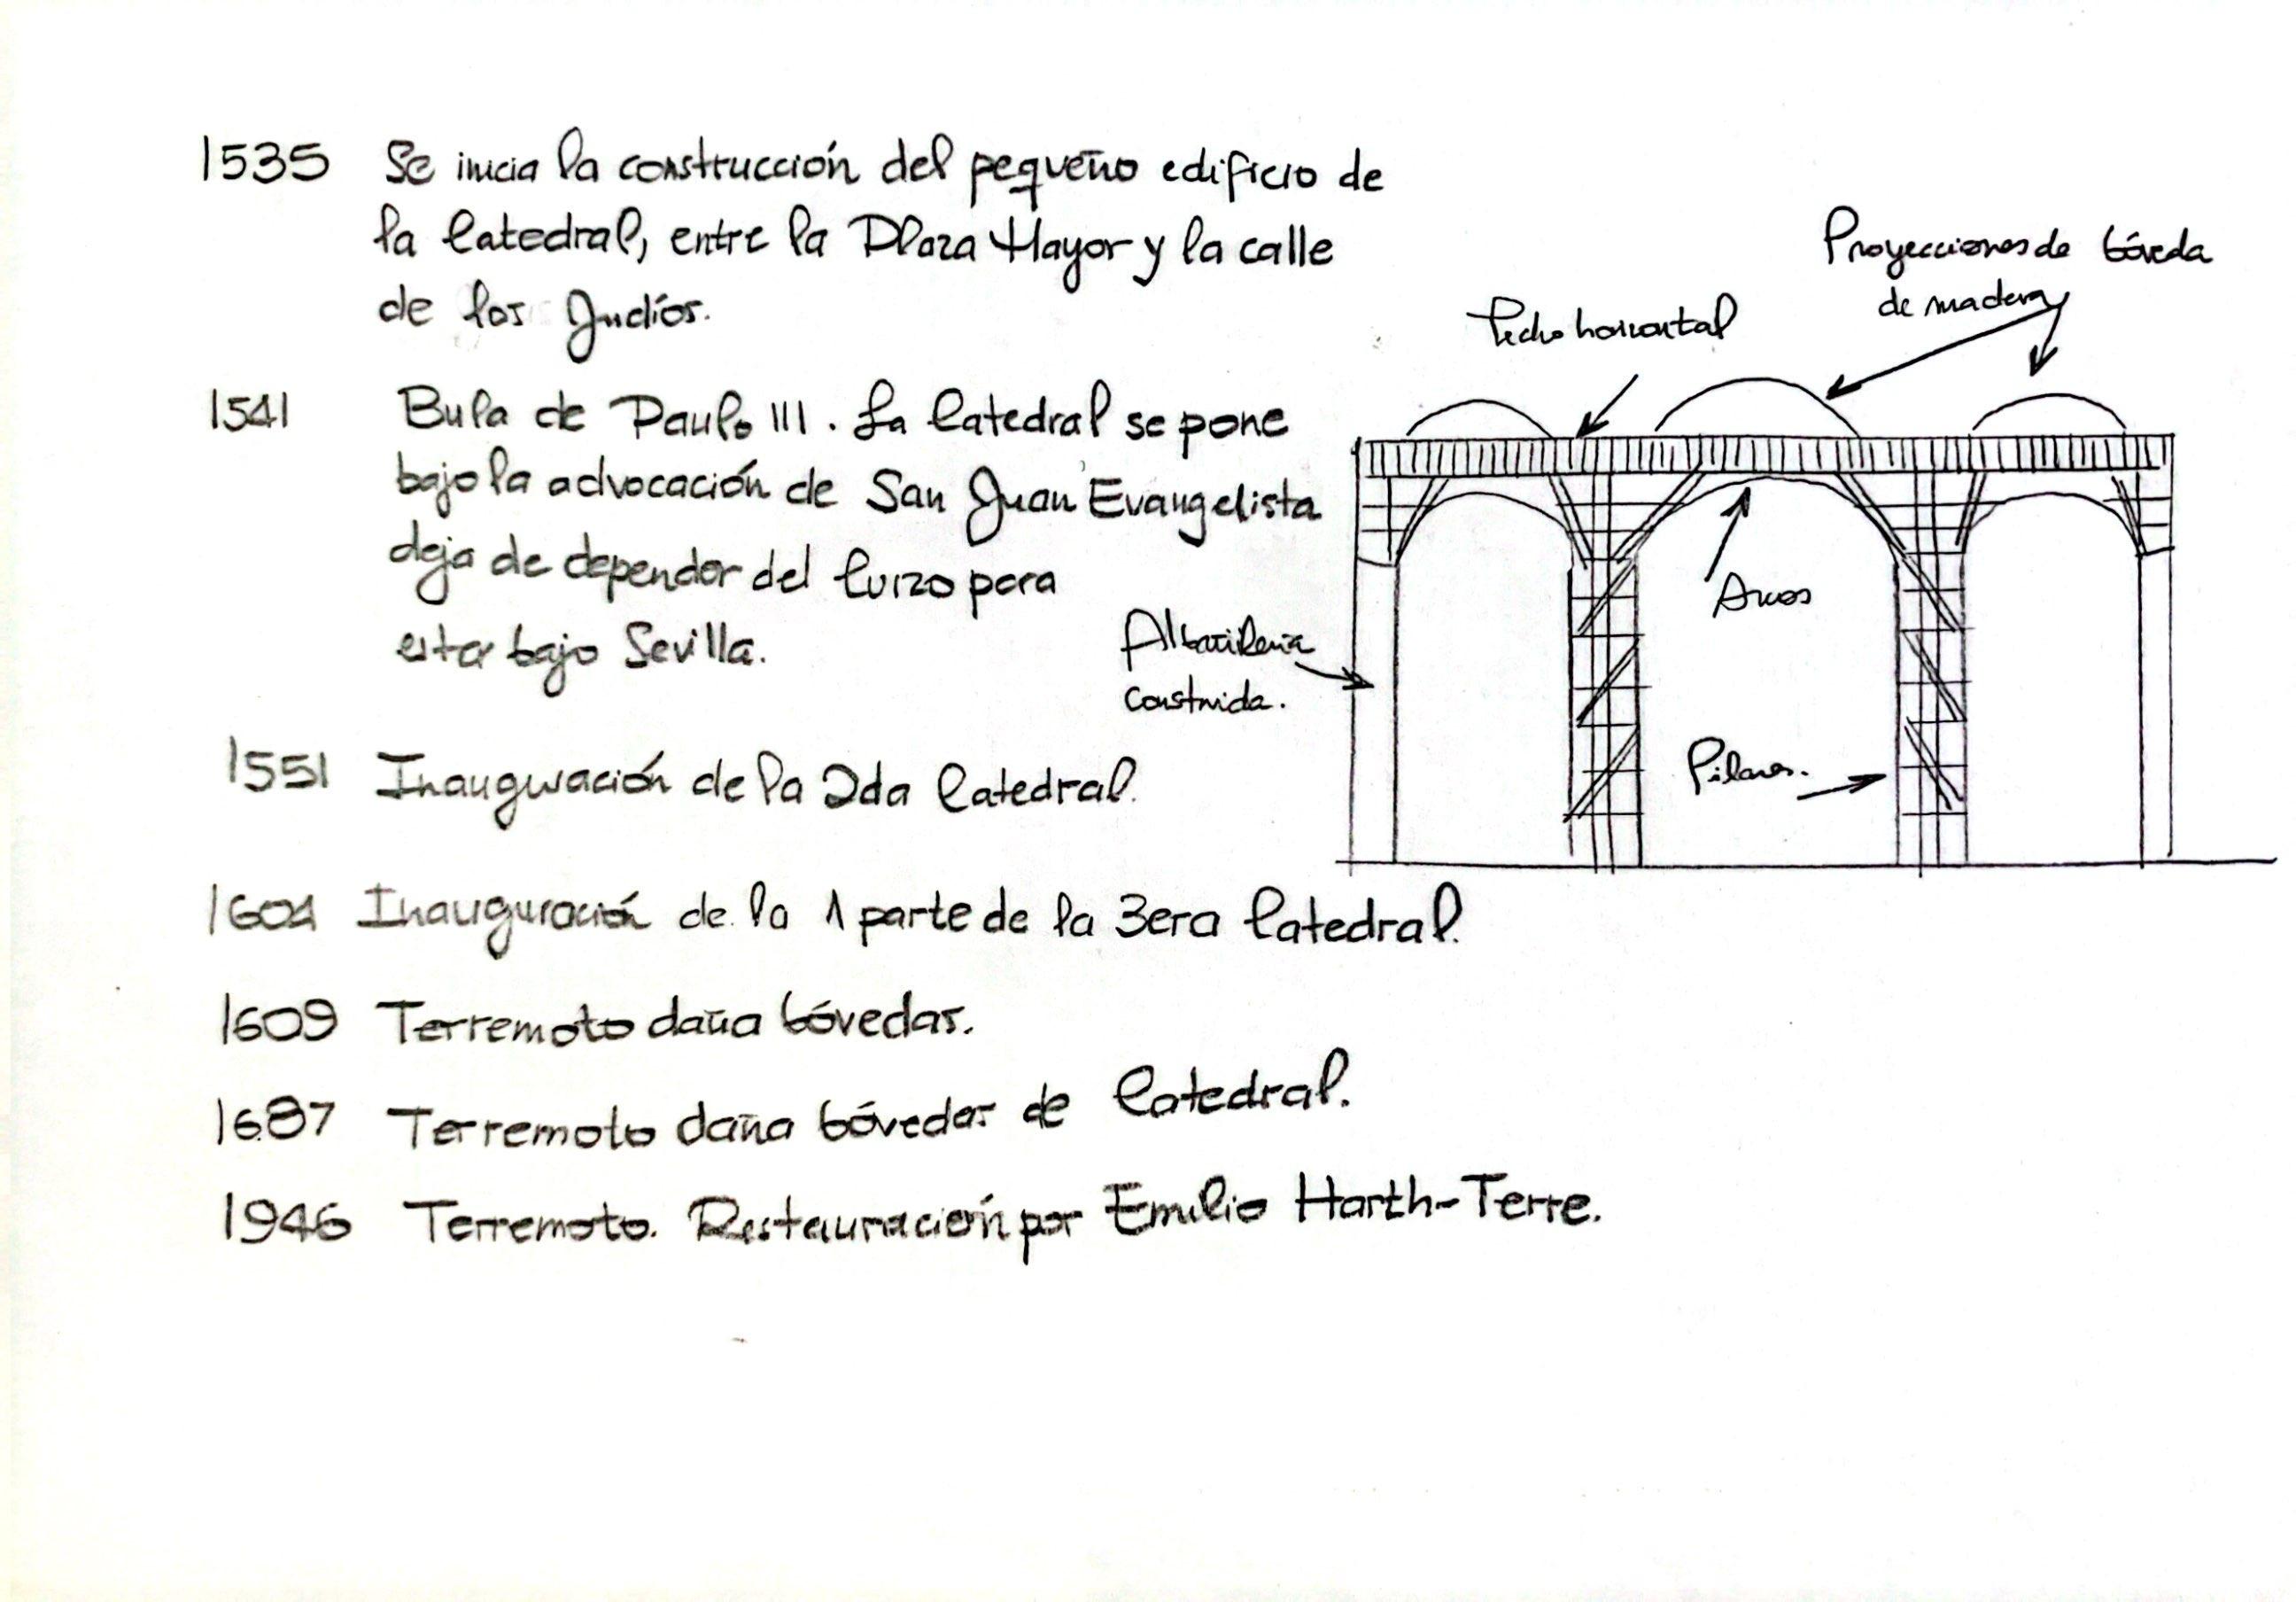 1535 Se inicia la construcción del pequeño edificio de
la Catedral, entre la Plaza Mayor y la calle
de los Judíos.
1541 Bula de Paulo III. La Catedral se pone
bajo la advocación de San Juan Evangelista
deja de depender del Cuzco para
estar bajo Sevilla.
1551 Inauguración de la 2da Catedral.
1604 Inauguración de la 1 parte de la 3era Catedral.
1609 Terremoto daña bóvedas.
1687 Terremoto daña bóvedas de Catedral.
1946 Terremoto. Restauración por Emilio Harth-Terre.
Proyecciones de bóveda
de madera
Techo horizontal
Arcos
Albañilería
construida.
Pilares.